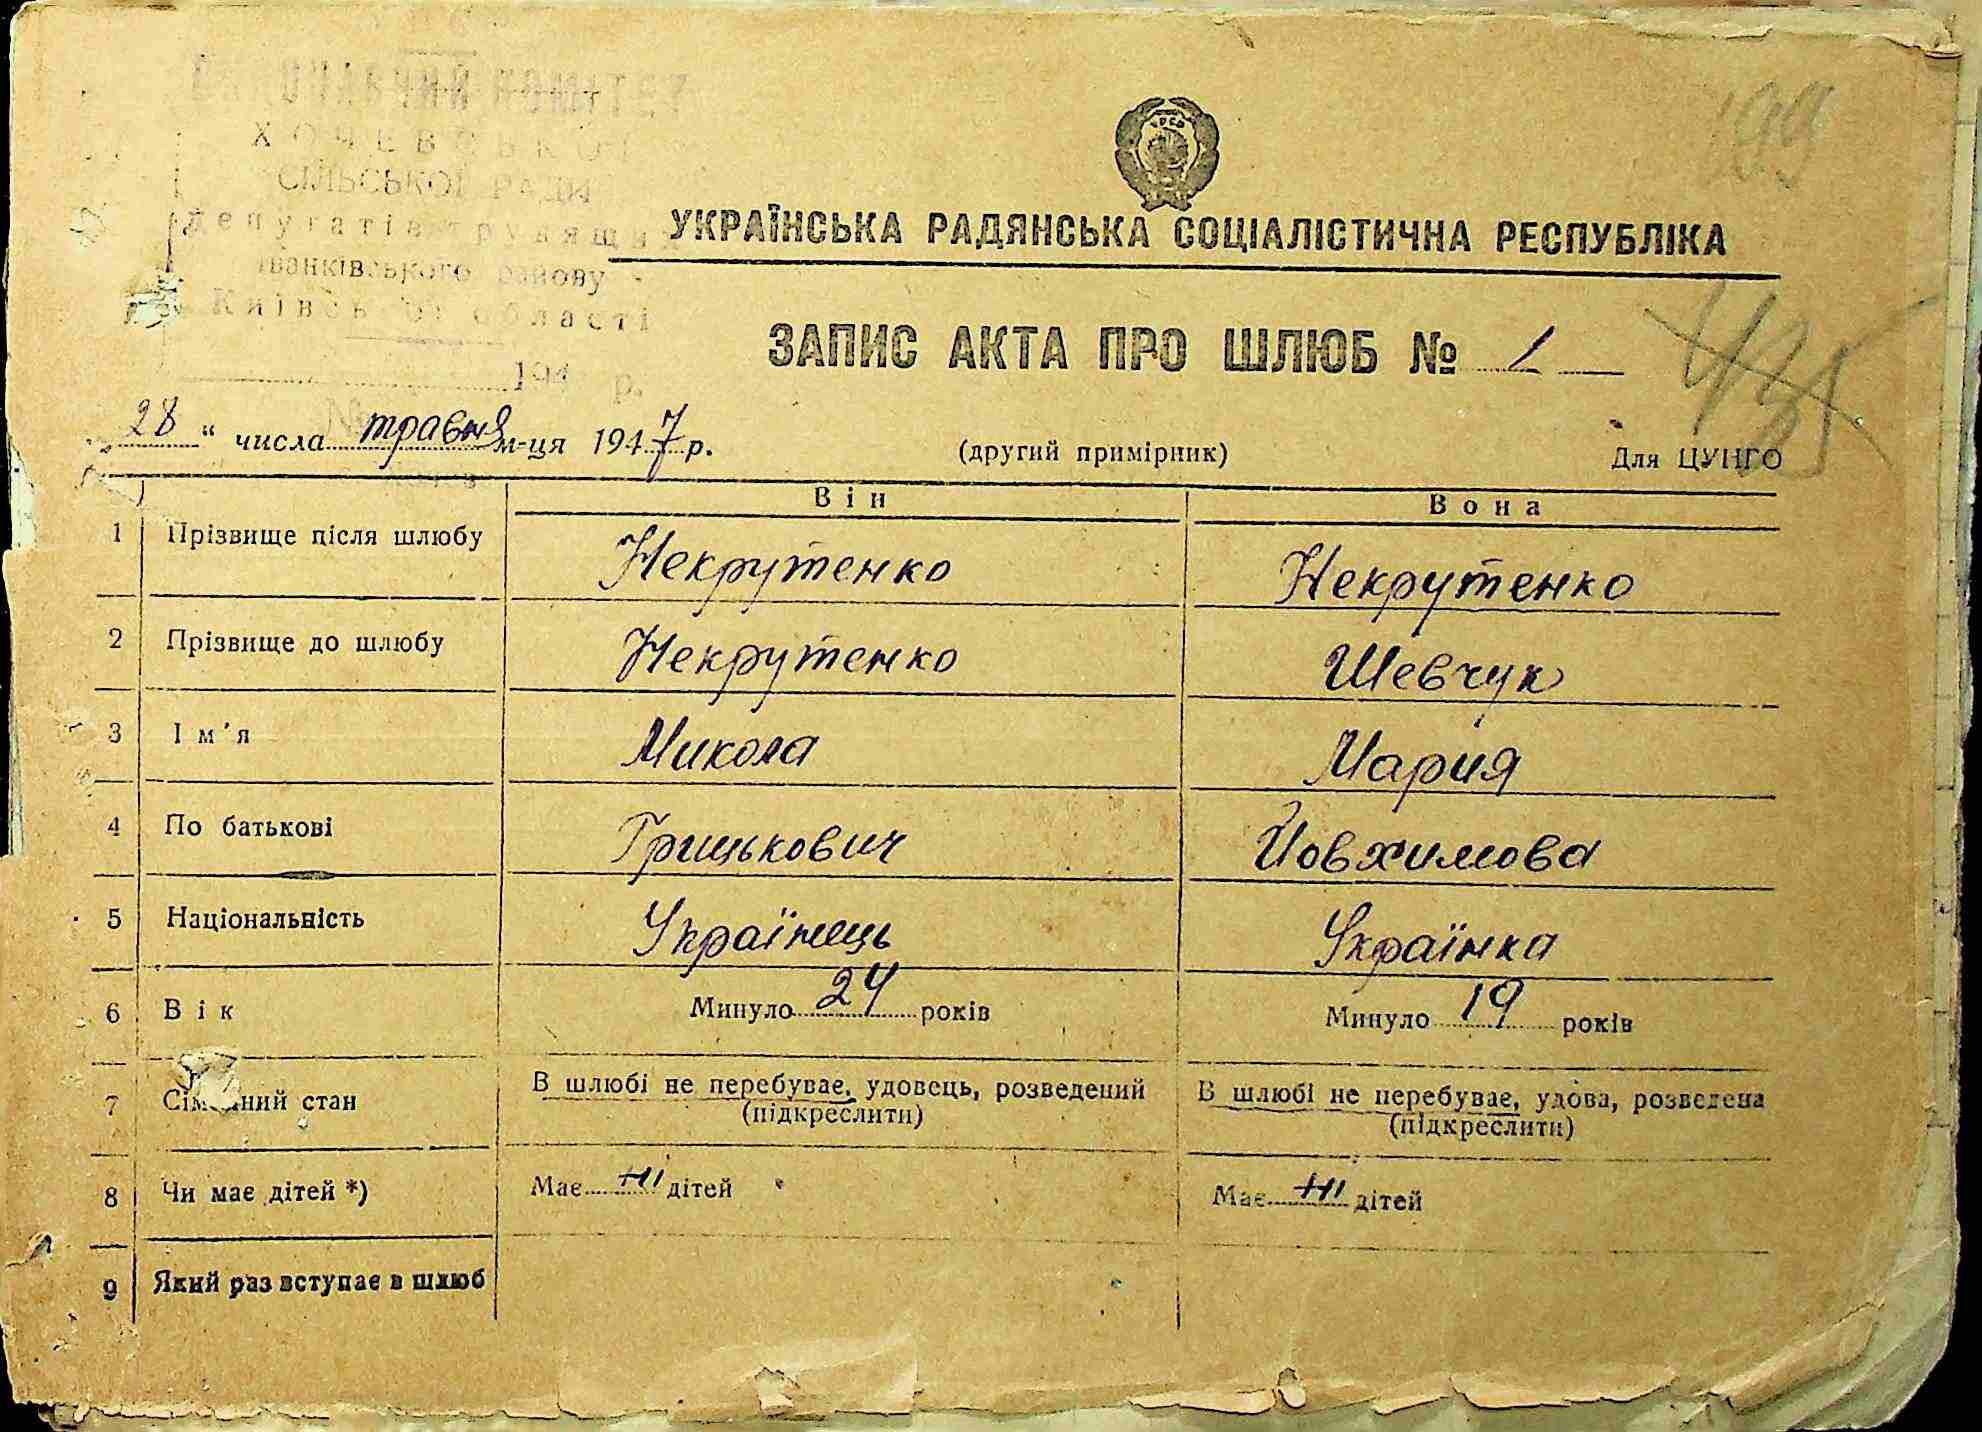 ВИКОНАВЧИЙ КОМІТЕТ
ХОЧЕВСЬКОЇ
СІЛЬСЬКОЇ РАДИ
депутатів трудящих
Іванківського району
Київської області
194 р.
№
199
УРСР
УКРАЇНСЬКА РАДЯНСЬКА СОЦІАЛІСТИЧНА РЕСПУБЛІКА
ЗАПИС АКТА ПРО ШЛЮБ № 1
28 " числа травня м-ця 1947 р. (другий примірник) Для ЦУНГО
Він Вона
1 Прізвище після шлюбу Некрутенко Некрутенко
2 Прізвище до шлюбу Некрутенко Шевчук
3 Ім'я Микола Мария
4 По батькові Грицькович Йовхимова
5 Національність Українець Українка
6 Вік Минуло 24 років Минуло 19 років
7 Сімейний стан В шлюбі не перебуває, удовець, розведений В шлюбі не перебуває, удова, розведена
(підкреслити) (підкреслити)
8 Чи має дітей *) Має ні дітей Має ні дітей
9 Який раз вступає в шлюб